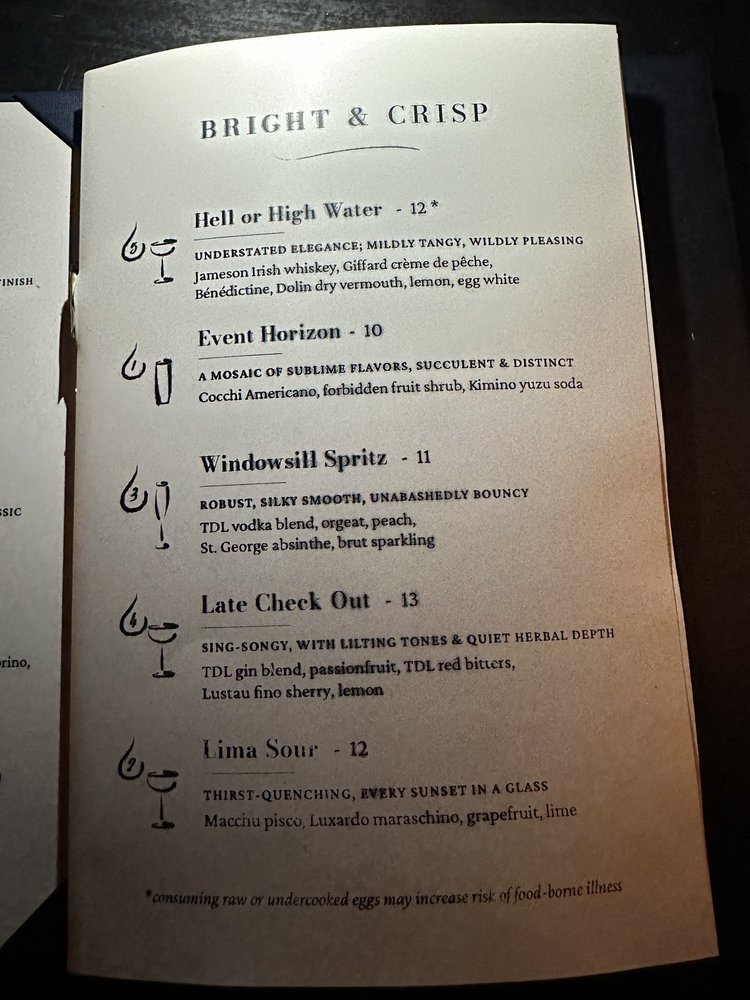 BRIGHT & CRISP
Hell or High Water - 12*
5
UNDERSTATED ELEGANCE; MILDLY TANGY, WILDLY PLEASING
Jameson Irish whiskey, Giffard crème de pêche,
Bénédictine, Dolin dry vermouth, lemon, egg white
Event Horizon - 10
1
A MOSAIC OF SUBLIME FLAVORS, SUCCULENT & DISTINCT
Cocchi Americano, forbidden fruit shrub, Kimino yuzu soda
Windowsill Spritz - 11
3
ROBUST, SILKY SMOOTH, UNABASHEDLY BOUNCY
TDL vodka blend, orgeat, peach,
St. George absinthe, brut sparkling
Late Check Out - 13
4
SING-SONGY, WITH LILTING TONES & QUIET HERBAL DEPTH
TDL gin blend, passionfruit, TDL red bitters,
Lustau fino sherry, lemon
Lima Sour - 12
2
THIRST-QUENCHING, EVERY SUNSET IN A GLASS
Macchu pisco, Luxardo maraschino, grapefruit, lime
*consuming raw or undercooked eggs may increase risk of food-borne illness